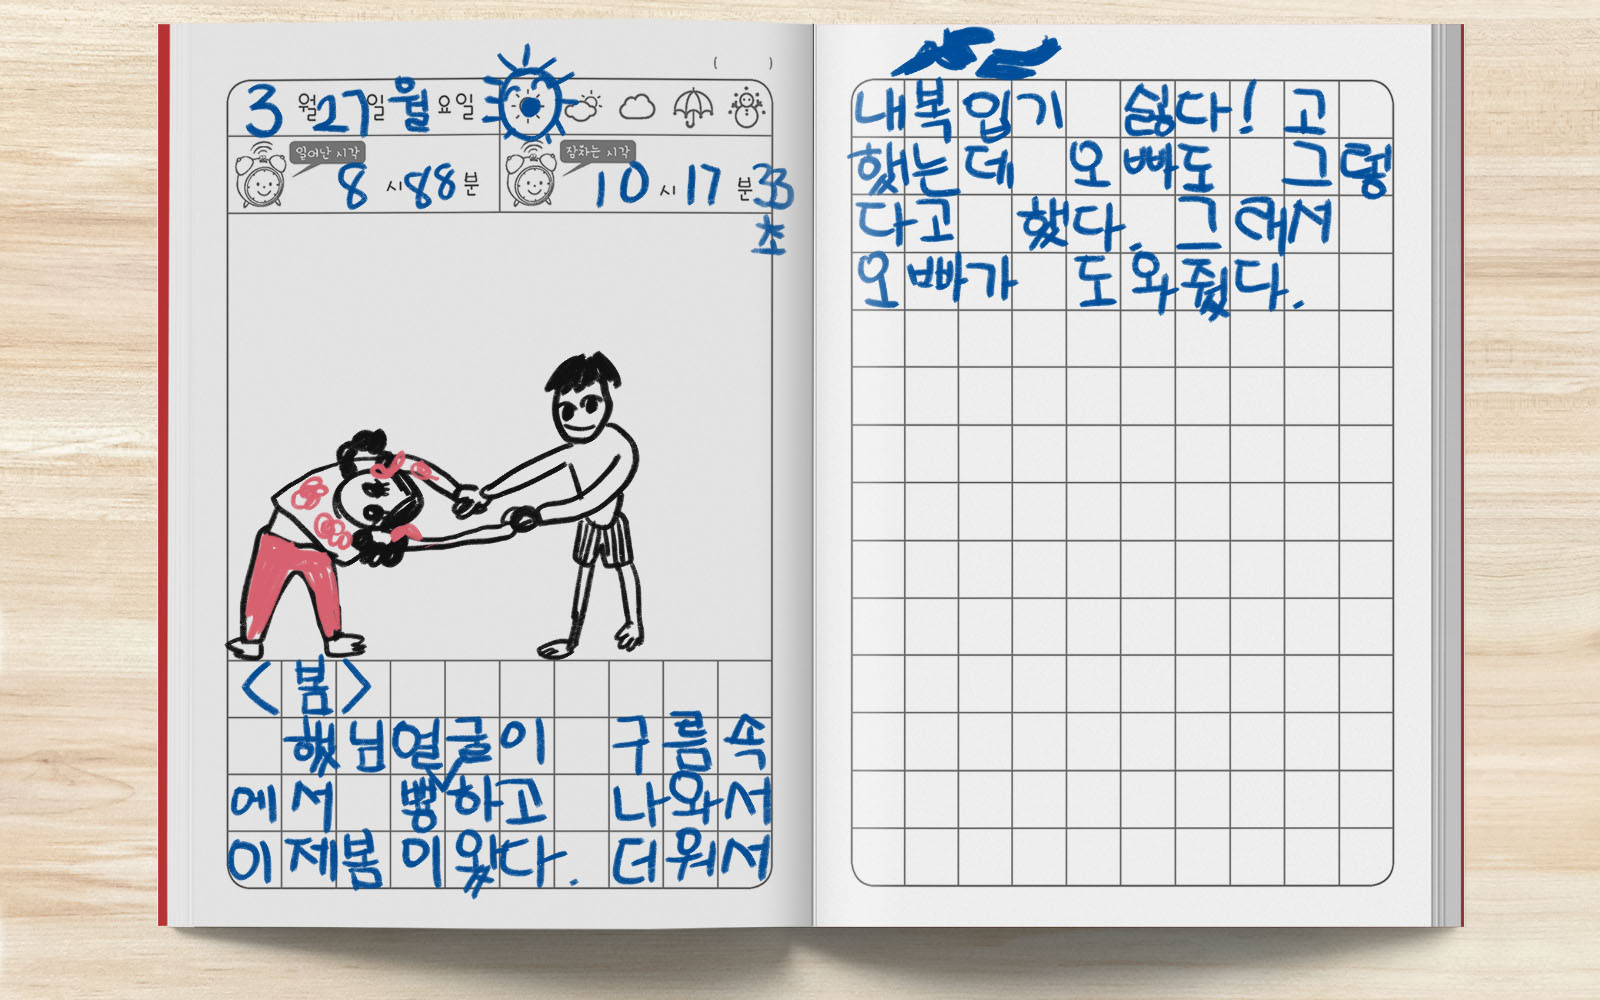 ( )
3 월 27 일 월 요일
일어난 시각 8 시 88 분 잠자는 시각 10 시 17 분 33
초
<봄>
했님얼굴이 구름속
에서 뿅하고 나와서
이제봄이왔다. 더워서
내복입기 싫다! 고
했는데 오빠도 그렇
다고 했다. 그래서
오빠가 도와줬다.